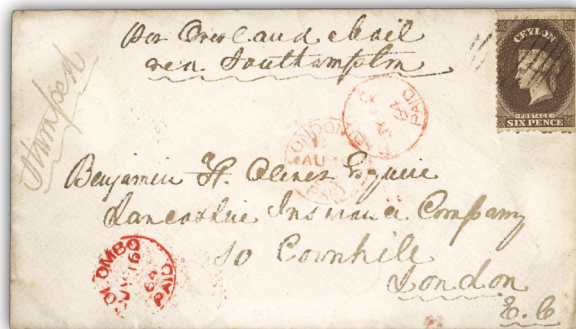 Per Overland Mail
via Southampton
Stamped
CEYLON
POSTAGE
SIX PENCE
PAID
LONDON
AU
PAID
Benjamin H. Esquire
Lancashire Insurance Company
10 Cornhill
London
E.C
COLOMBO
16
64
PAID